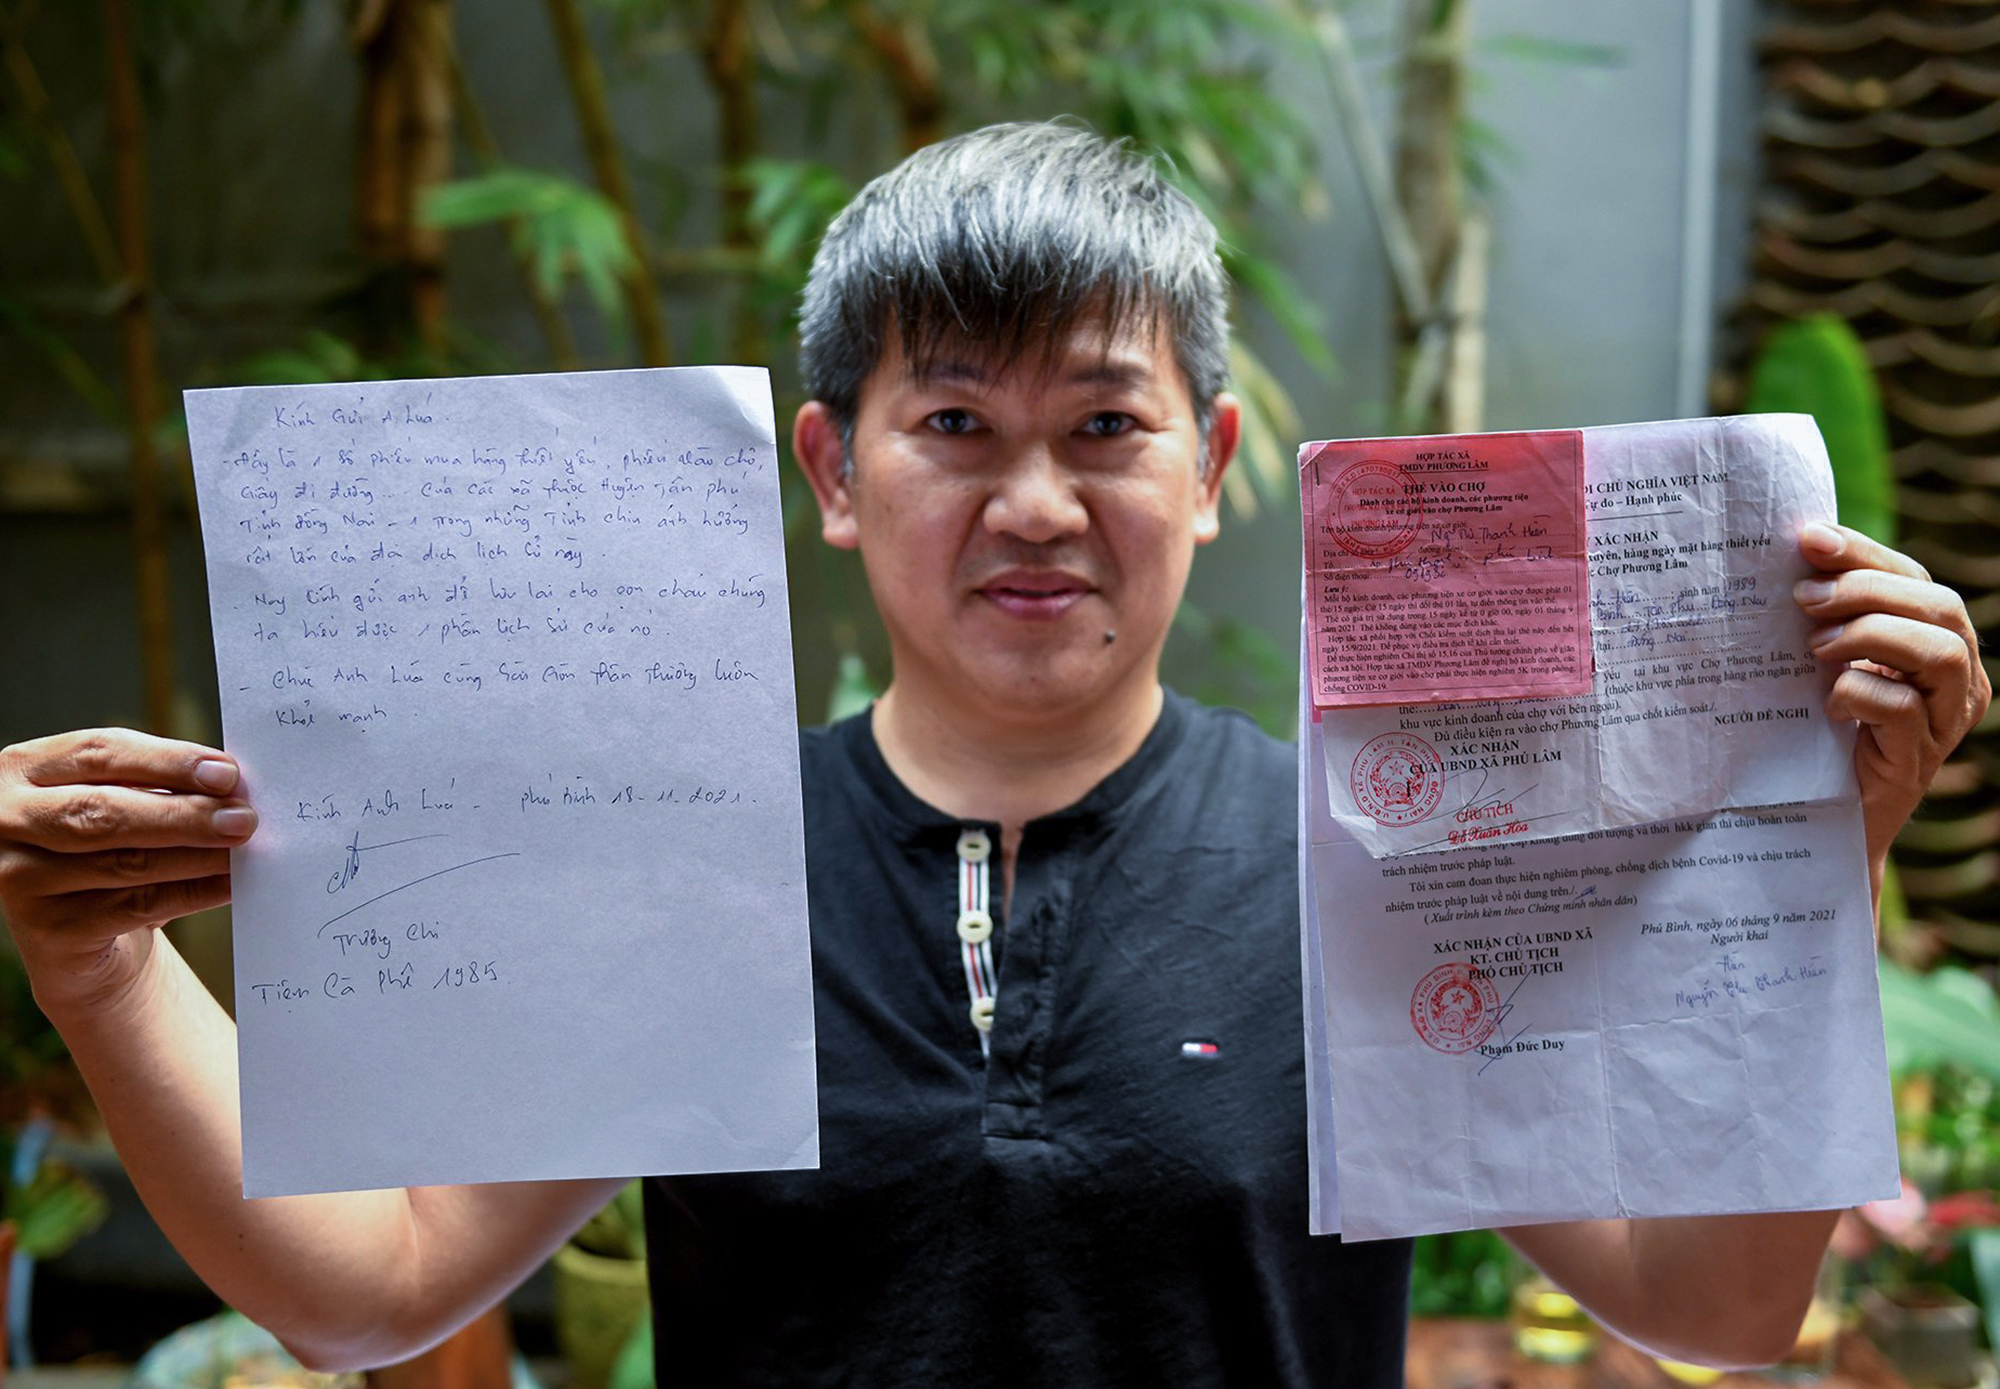 Kính Gửi A Luá.
- Đây là 1 số phiếu mua hàng thiết yếu, phiếu vào chợ,
Giấy đi đường... của các xã thuộc Huyện Tân phú
Tỉnh Đồng Nai - 1 trong những Tỉnh chịu ảnh hưởng
rất lớn của đại dịch lịch sử này.
- Nay Kính gửi anh để lưu lại cho con cháu chúng
ta hiểu được 1 phần lịch sử của nó.
- Chúc Anh Luá cùng Sài Gòn thân thương luôn
khoẻ mạnh.
Kính Anh Luá - phú Bình 18-11-2021.
Trường Chi
Tiệm Cà Phê 1985.
HỢP TÁC XÃ
TMDV PHƯƠNG LÂM
THẺ VÀO CHỢ
Dành cho các hộ kinh doanh, các phương tiện
xe cơ giới vào chợ Phương Lâm
Tên hộ kinh doanh/phương tiện xe cơ giới
Thanh Hiền
Địa chỉ
Tổ
Số điện thoại:
Lưu ý:
Mỗi hộ kinh doanh, các phương tiện xe cơ giới vào chợ được phát 01
thẻ/15 ngày. Cứ 15 ngày thì đổi thẻ 01 lần, tự điền thông tin vào thẻ.
Thẻ có giá trị sử dụng trong 15 ngày kể từ 0 giờ 00, ngày 01 tháng 9
năm 2021. Thẻ không dùng vào các mục đích khác.
Hợp tác xã phối hợp với Chốt kiểm soát dịch thu lại thẻ này đến hết
ngày 15/9/2021. Để phục vụ điều tra dịch tễ khi cần thiết.
Để thực hiện nghiêm Chỉ thị số 15,16 của Thủ tướng chính phủ về giãn
cách xã hội. Hợp tác xã TMDV Phương Lâm đề nghị hộ kinh doanh, các
phương tiện xe cơ giới vào chợ phải thực hiện nghiêm 5K trong phòng,
chống COVID-19.
CHỦ NGHĨA VIỆT NAM
Tự do – Hạnh phúc
XÁC NHẬN
xuyên, hàng ngày mặt hàng thiết yếu
Chợ Phương Lâm
sinh năm 1989
Đồng Nai
Đồng Nai
yếu tại khu vực Chợ Phương Lâm,
(thuộc khu vực phía trong hàng rào ngăn giữa
khu vực kinh doanh của chợ với bên ngoài).
Đủ điều kiện ra vào chợ Phương Lâm qua chốt kiểm soát./.
NGƯỜI ĐỀ NGHỊ
XÁC NHẬN
CỦA UBND XÃ PHÚ LÂM
CHỦ TỊCH
Đỗ Xuân Hoa
không đúng đối tượng và thời hkk gian thì chịu hoàn toàn
trách nhiệm trước pháp luật.
Tôi xin cam đoan thực hiện nghiêm phòng, chống dịch bệnh Covid-19 và chịu trách
nhiệm trước pháp luật về nội dung trên./.
(Xuất trình kèm theo Chứng minh nhân dân)
Phú Bình, ngày 06 tháng 9 năm 2021
Người khai
XÁC NHẬN CỦA UBND XÃ
KT. CHỦ TỊCH
PHÓ CHỦ TỊCH
Hiền
Nguyễn Thị Thanh Hiền
Phạm Đức Duy